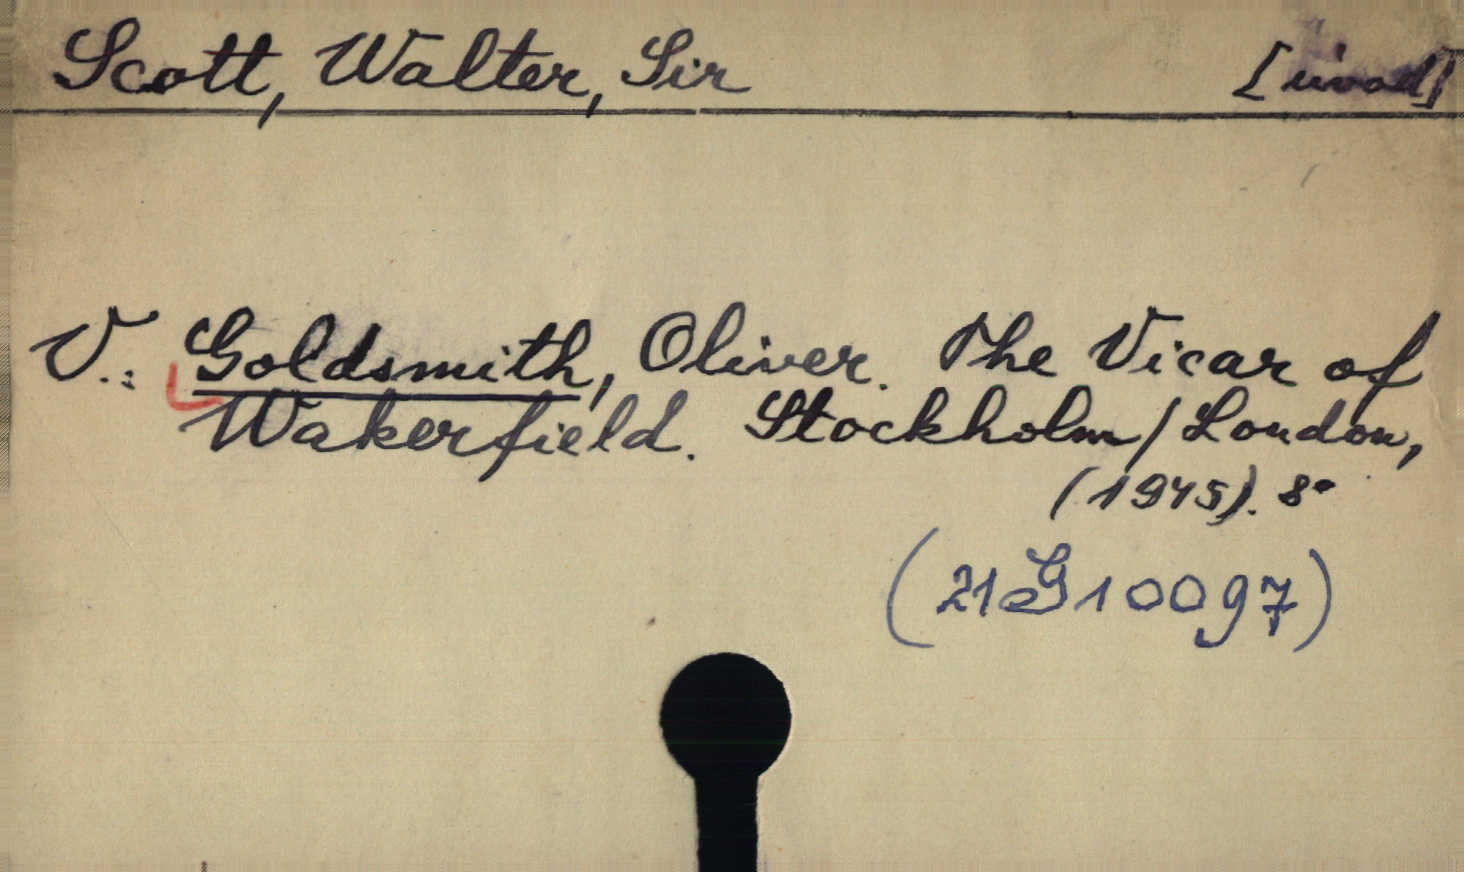 Scott, Walter, Sir [úvod]
V.: Goldsmith, Oliver. The Vicar of
Wakerfield. Stockholm/London,
(1945). 8°
(21G10097)